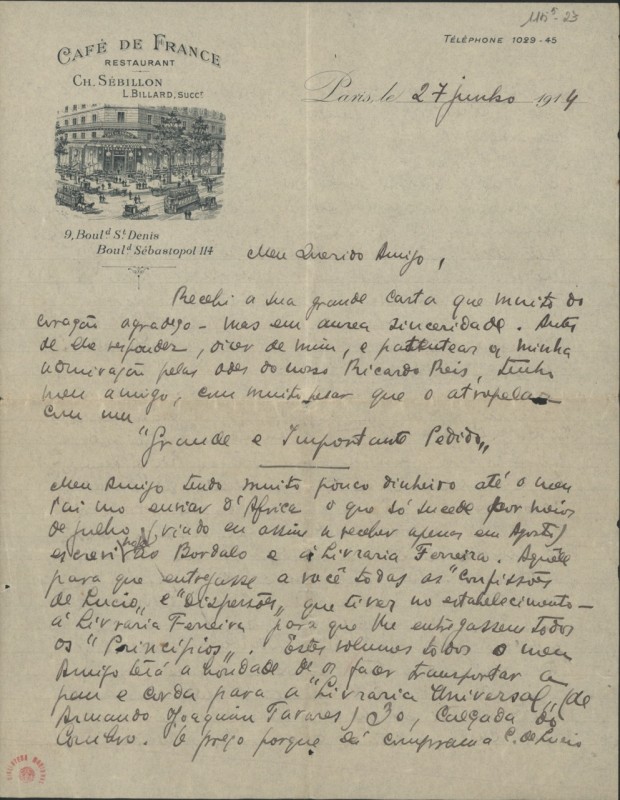 115⁵-23
CAFÉ DE FRANCE
RESTAURANT
CH. SÉBILLON
L. BILLARD, SUCCʳ
TÉLÉPHONE 1029-45
Paris, le 27 junho 1914
9, Boulᵈ Sᵗ Denis
Boulᵈ Sébastopol 114
Meu Querido Amigo,
Recebi a sua grande carta que muito do
coração agradeço – mas em aurea sinceridade. Antes
de lhe responder, dizer de mim, e patentear a minha
admiração pelas odes do nosso Ricardo Reis, tenho
meu amigo, com muito pesar que o atropelar
com um
"Grande e Importante Pedido"
Meu Amigo tendo muito pouco dinheiro até o meu
Pai mo enviar d'Africa o que só sucede por meios
de julho (vindo eu assim a receber apenas em Agosto)
escrevi hoje ao Bordalo e á Livraria Ferreira. Aquêle
para que entregasse a você todas as "Confissões
de Lucio" e "Dispersões" que tiver no estabelecimento –
á Livraria Ferreira para que lhe entregassem todos
os "Principios". Êstes volumes todos o meu
Amigo terá a bondade de os fazer transportar a
pau e corda para a "Livraria Universal" (de
Armando Joaquim Tavares) 30, Calçada do
Combro. O preço porque êle comprava a C. de Lucio